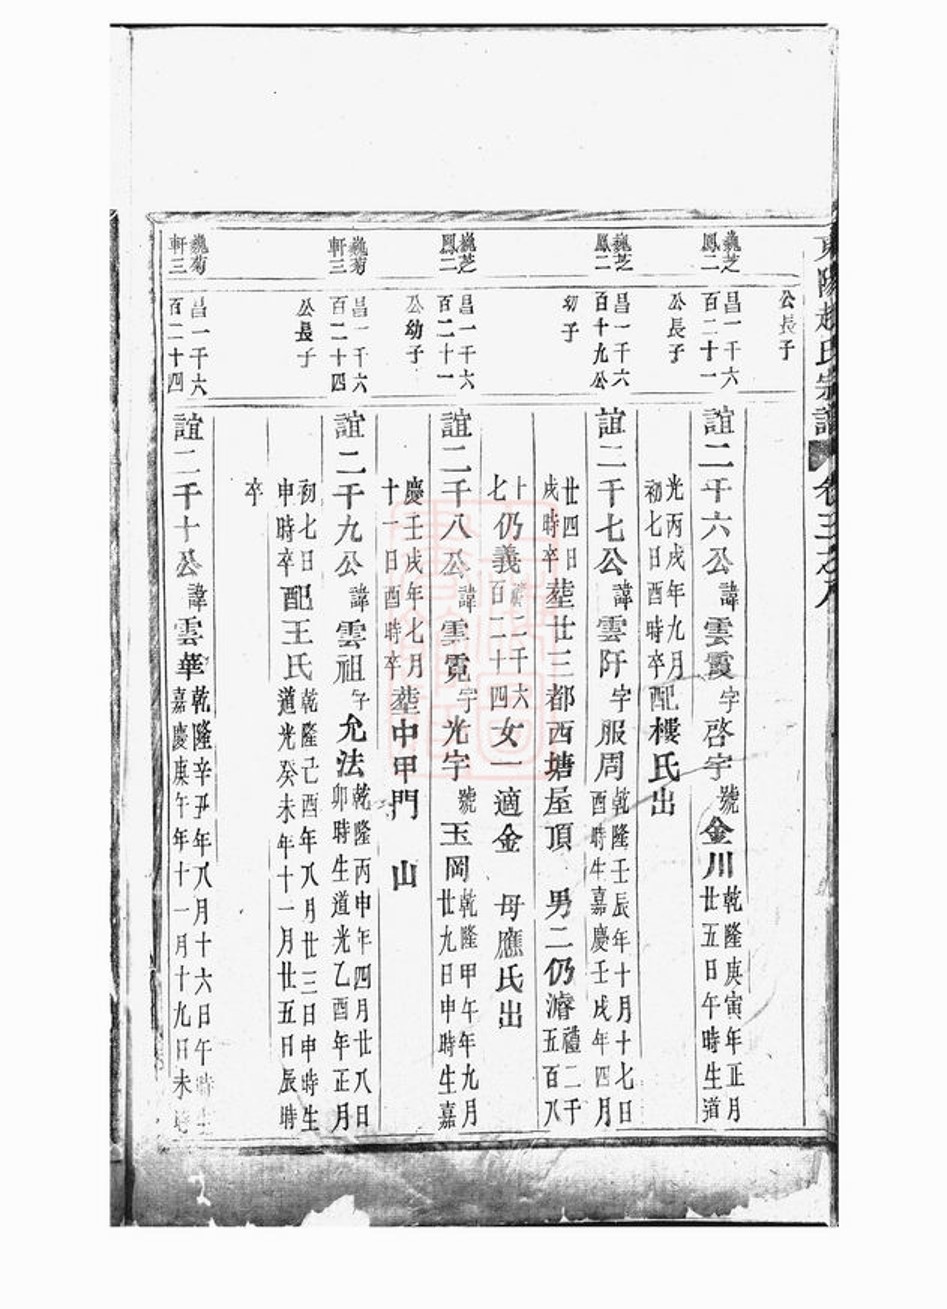 東陽趙氏宗譜 卷三之八
公長子
巍芝
鳳二
昌一千六
百二十一
公長子
誼二千六公諱雲霞字啓宇號金川乾隆庚寅年正月
廿五日午時生道
光丙戌年九月
初七日酉時卒配樓氏出
巍芝
鳳二
昌一千六
百十九公
幼子
誼二千七公諱雲阡字服周乾隆壬辰年十月十七日
酉時生嘉慶壬戌年四月
廿四日
戌時卒塟廿三都西塘屋頂 男二仍濬禮二千
五百八
十
七仍義禮二千六
百二十四女一適金 母應氏出
巍芝
鳳二
昌一千六
百二十一
公幼子
誼二千八公諱雲霓字光宇號玉岡乾隆甲午年九月
廿九日申時生嘉
慶壬戌年七月
十一日酉時卒塟中甲門 山
巍菊
軒三
昌一千六
百二十四
公長子
誼二千九公諱雲祖字允法乾隆丙申年四月廿八日
卯時生道光乙酉年正月
初七日
申時卒配王氏乾隆己酉年八月廿三日申時生
道光癸未年十一月廿五日辰時
卒
巍菊
軒三
昌一千六
百二十四
誼二千十公諱雲華乾隆辛丑年八月十六日午時生
嘉慶庚午年十一月十九日未時